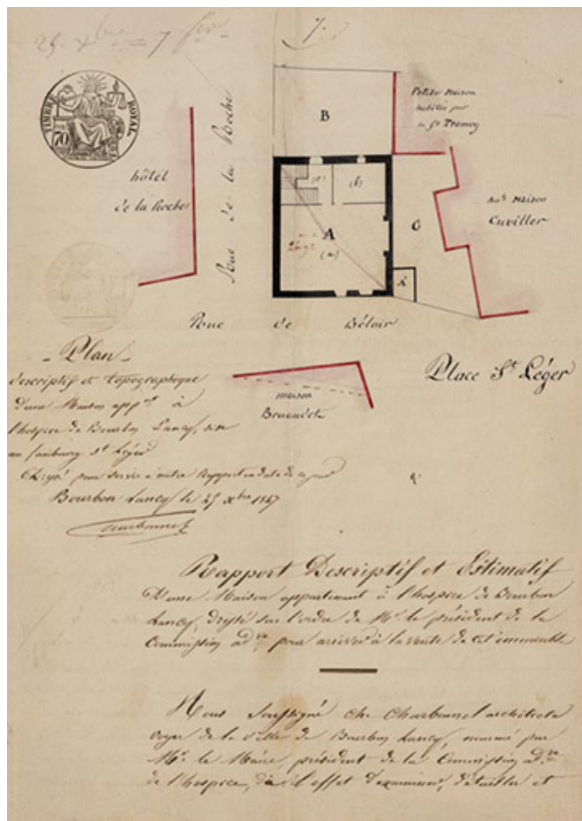 25 xbre = 7
7.
TIMBRE ROYAL
70
hôtel
de la Roche
Rue de la Roche
B
Petite Maison
habitée par
le Sr
(c)
(b)
A
(a)
C
A'
Anc. Maison
Cuvillier
Rue de Bélair
Place St Léger
maison
- Plan -
descriptif et topographique
d'une Maison appnt à
l'hospice de Bourbon Lancy, sise
au faubourg St Léger
Dressé pour servir à notre Rapport en date de ce jour
Bourbon Lancy le 25 xbre 1847
Charbonnet
Rapport Descriptif et Estimatif
D'une Maison appartenant à l'hospice de Bourbon
Lancy, dressé sur l'ordre de Mr. le président de la
Commission adve pour arriver à la vente de cet immeuble
Nous Soussigné Ch. Charbonnel architecte
voyer de la ville de Bourbon Lancy, nommé par
Mr. le Maire, président de la Commission adve
de l'hospice, à l'effet d'examiner, détailler et